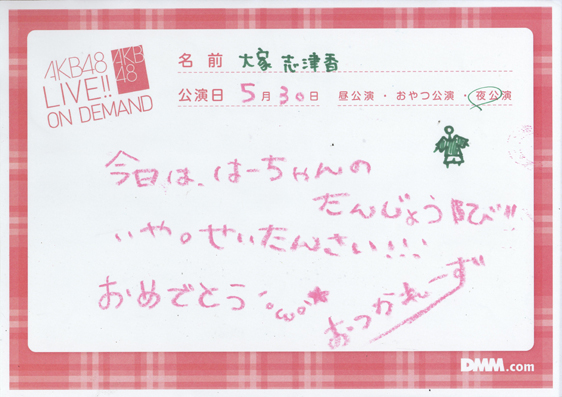 AKB48
LIVE!!
ON DEMAND
AKB
48
名前 大家 志津香
公演日 5月30日 昼公演・おやつ公演・夜公演
今日は、はーちゃんの
たんじょうびび!!
いや。せいたんさい!!!
おめでとう
おつかれーず
DMM.com